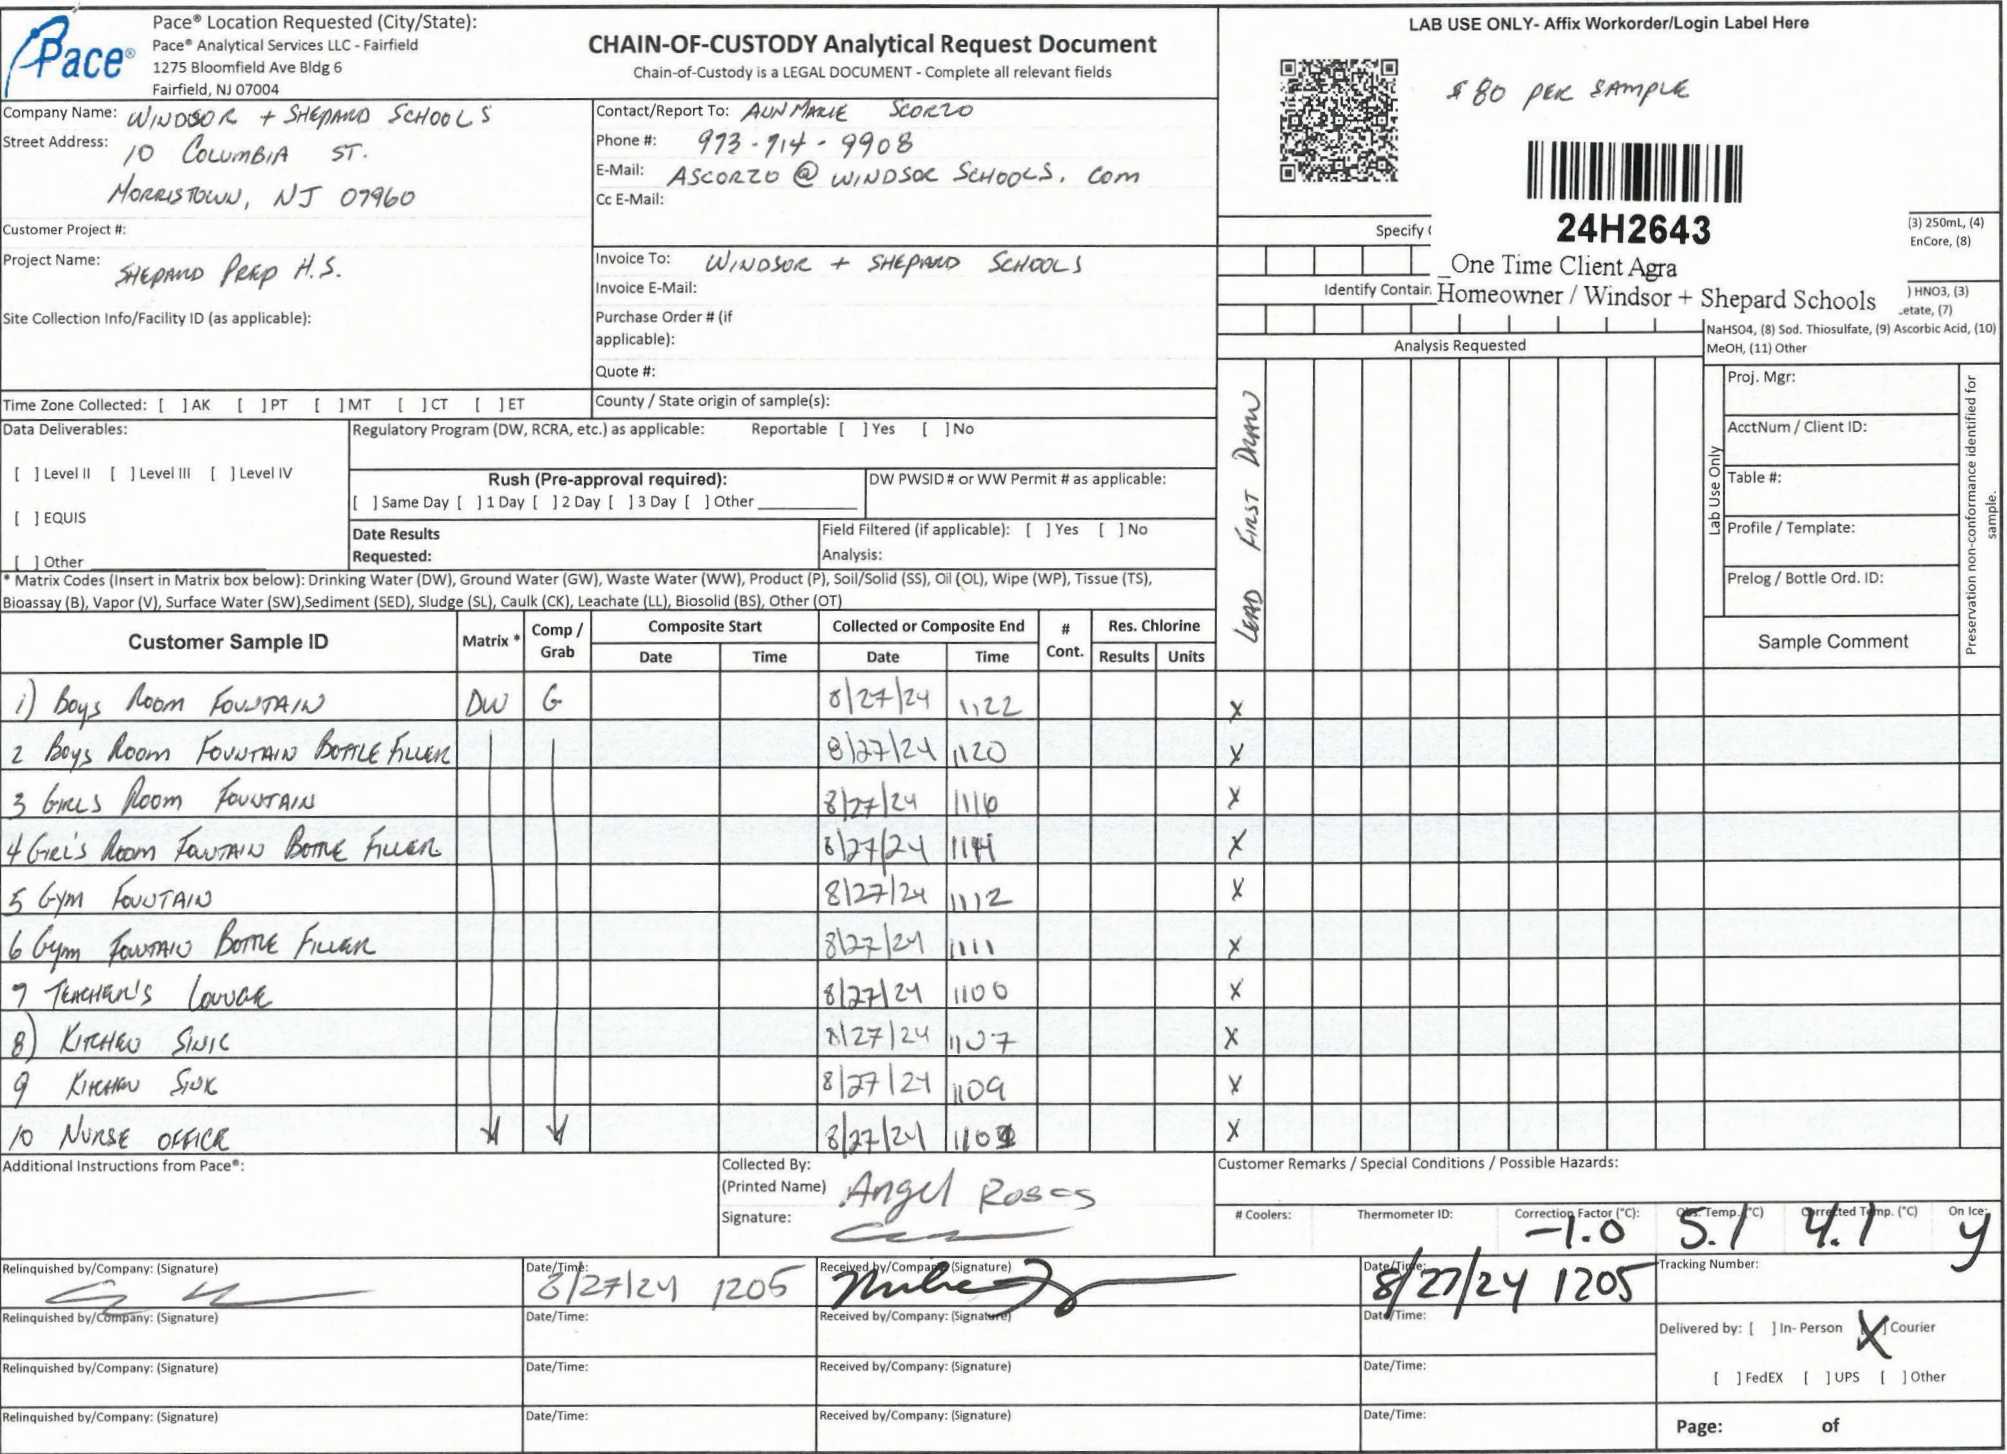 Pace® Location Requested (City/State):
Pace® Analytical Services LLC - Fairfield
1275 Bloomfield Ave Bldg 6
Fairfield, NJ 07004
Pace®
CHAIN-OF-CUSTODY Analytical Request Document
Chain-of-Custody is a LEGAL DOCUMENT - Complete all relevant fields
LAB USE ONLY- Affix Workorder/Login Label Here
$80 PER SAMPLE
24H2643
_One Time Client Agra
Homeowner / Windsor + Shepard Schools
Company Name: WINDSOR + SHEPARD SCHOOLS
Street Address: 10 COLUMBIA ST.
MORRISTOWN, NJ 07960
Contact/Report To: ANNMARIE SCORZO
Phone #: 973-714-9908
E-Mail: ASCORZO@WINDSOR SCHOOLS.COM
Cc E-Mail:
Customer Project #:
Project Name: SHEPARD PREP H.S.
Site Collection Info/Facility ID (as applicable):
Invoice To: WINDSOR + SHEPARD SCHOOLS
Invoice E-Mail:
Purchase Order # (if
applicable):
Quote #:
Specify
(3) 250mL, (4)
EnCore, (8)
Identify Contain
) HNO3, (3)
etate, (7)
NaHSO4, (8) Sod. Thiosulfate, (9) Ascorbic Acid, (10)
MeOH, (11) Other
Analysis Requested
LEAD FIRST DRAW
Time Zone Collected: [ ] AK [ ] PT [ ] MT [ ] CT [ ] ET
County / State origin of sample(s):
Data Deliverables:
[ ] Level II [ ] Level III [ ] Level IV
[ ] EQUIS
[ ] Other
Regulatory Program (DW, RCRA, etc.) as applicable: Reportable [ ] Yes [ ] No
Rush (Pre-approval required):
[ ] Same Day [ ] 1 Day [ ] 2 Day [ ] 3 Day [ ] Other
DW PWSID # or WW Permit # as applicable:
Date Results
Requested:
Field Filtered (if applicable): [ ] Yes [ ] No
Analysis:
Lab Use Only
Proj. Mgr:
AcctNum / Client ID:
Table #:
Profile / Template:
Prelog / Bottle Ord. ID:
Sample Comment
Preservation non-conformance identified for
sample.
* Matrix Codes (Insert in Matrix box below): Drinking Water (DW), Ground Water (GW), Waste Water (WW), Product (P), Soil/Solid (SS), Oil (OL), Wipe (WP), Tissue (TS),
Bioassay (B), Vapor (V), Surface Water (SW),Sediment (SED), Sludge (SL), Caulk (CK), Leachate (LL), Biosolid (BS), Other (OT)
Customer Sample ID Matrix * Comp / Grab Composite Start Collected or Composite End # Cont. Res. Chlorine
Date Time Date Time Results Units
1) BOYS ROOM FOUNTAIN DW G 8/27/24 1122 X
2 BOYS ROOM FOUNTAIN BOTTLE FILLER 8/27/24 1120 X
3 GIRLS ROOM FOUNTAIN 8/27/24 1116 X
4 GIRL'S ROOM FOUNTAIN BOTTLE FILLER 8/27/24 X
5 GYM FOUNTAIN 8/27/24 1112 X
6 GYM FOUNTAIN BOTTLE FILLER 8/27/24 1111 X
7 TEACHER'S LOUNGE 8/27/24 1100 X
8) KITCHEN SINK 8/27/24 1107 X
9 KITCHEN SINK 8/27/24 1109 X
10 NURSE OFFICE 8/27/24 X
Additional Instructions from Pace®:
Collected By:
(Printed Name) Angel Rosas
Signature:
Customer Remarks / Special Conditions / Possible Hazards:
# Coolers: Thermometer ID: Correction Factor (°C): -1.0 Obs. Temp. (°C) 5.1 Corrected Temp. (°C) 4.1 On Ice: y
Relinquished by/Company: (Signature) Date/Time: 8/27/24 1205 Received by/Company: (Signature) Date/Time: 8/27/24 1205 Tracking Number:
Relinquished by/Company: (Signature) Date/Time: Received by/Company: (Signature) Date/Time:
Delivered by: [ ] In- Person [X] Courier
Relinquished by/Company: (Signature) Date/Time: Received by/Company: (Signature) Date/Time:
[ ] FedEX [ ] UPS [ ] Other
Relinquished by/Company: (Signature) Date/Time: Received by/Company: (Signature) Date/Time:
Page: of